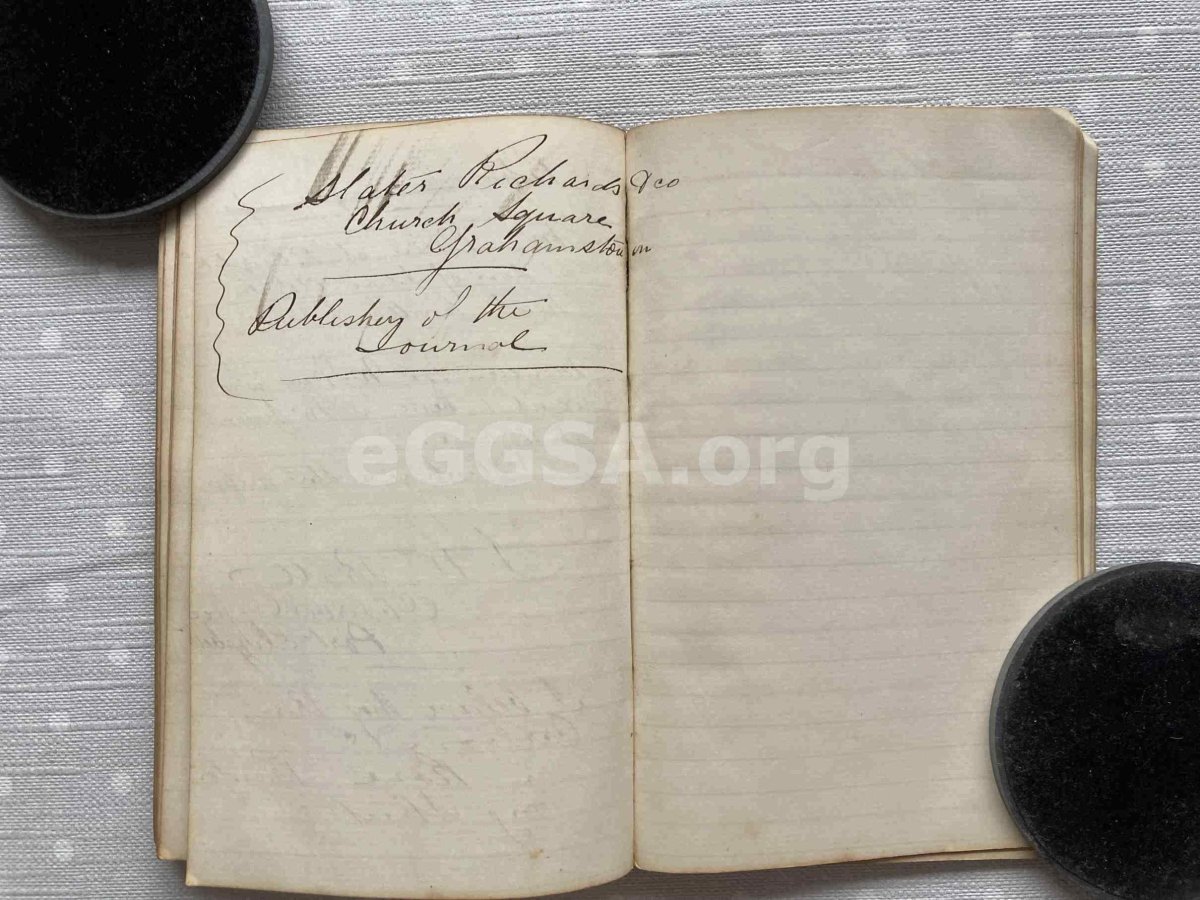 Slater Richards & co
Church Square
Grahamstown
Publishers of the
Journal
eGGSA.org